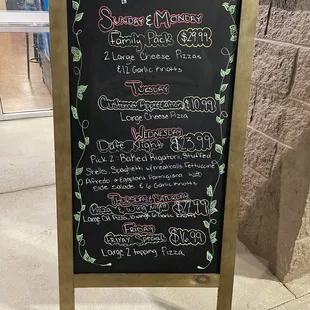 SUNDAY & MONDAY
Family Pack $29.99
2 Large Cheese Pizzas
& 12 Garlic Knotts
TUESDAY
Customer Appreciation $10.99
Large Cheese Pizza
WEDNESDAY
Date Night
Pick 2 - Baked Rigatoni, Stuffed
Shells, Spaghetti w/meatballs, Fettuccine
Alfredo or Eggplant Parmigiana w/
side salads & 6 Garlic Knotts
THURSDAY & SATURDAY
Pizza & Wing Night
Large CH Pizza,
FRIDAY
FRIYAY Special $16.99
Large 2 topping Pizza